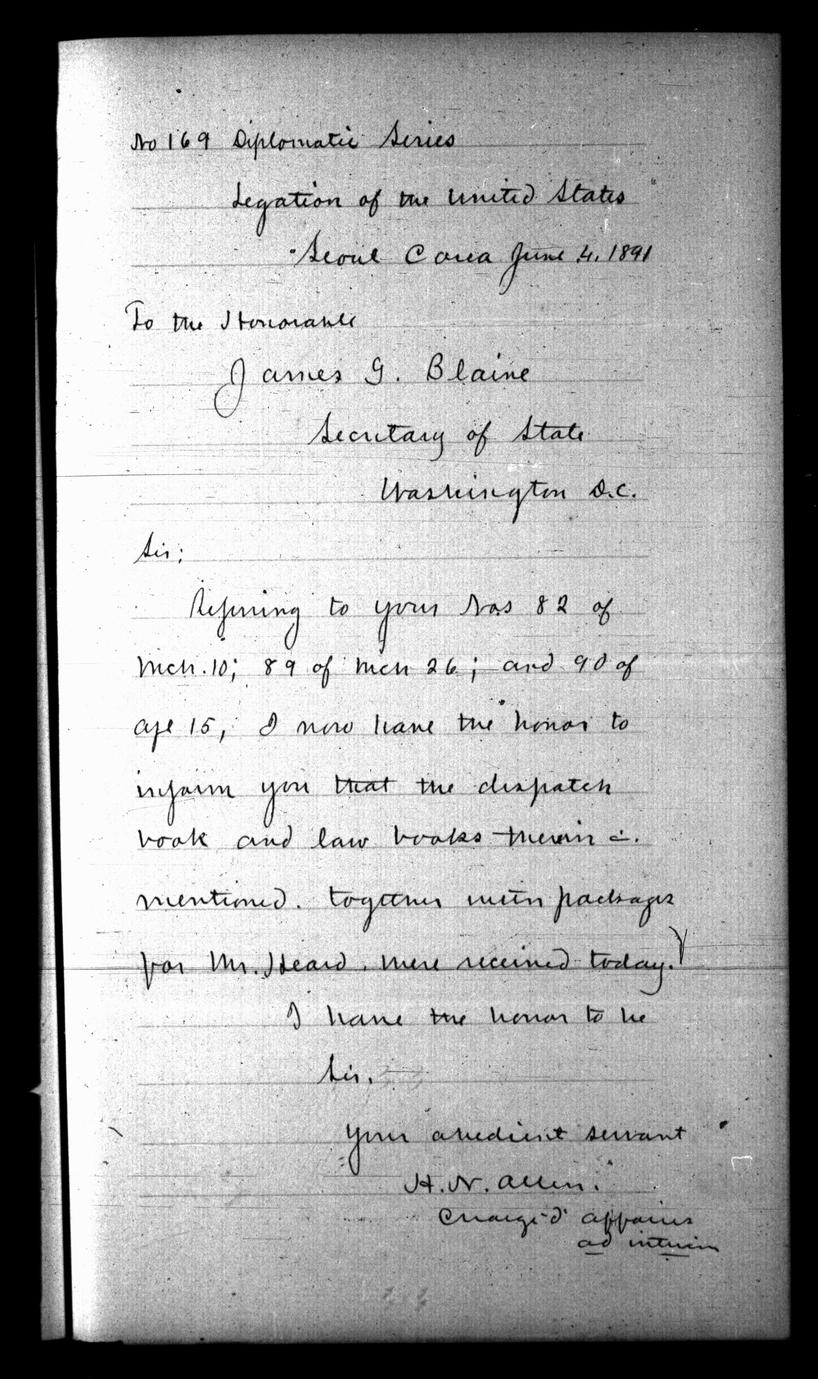 No 169 Diplomatic Series
Legation of the United States
Seoul Corea June 4, 1891
To the Honorable
James G. Blaine
Secretary of State
Washington D.C.
Sir:
Refering to your Nos 82 of
Mch. 10; 89 of Mch 26; and 90 of
Apl 15, I now have the honor to
inform you that the dispatch
book and law books therein
mentioned. together with packages
for Mr. Heard, were received today.
I have the honor to be
Sir,
Your obedient servant
H. N. Allen.
Chargé d' affaires
ad interim